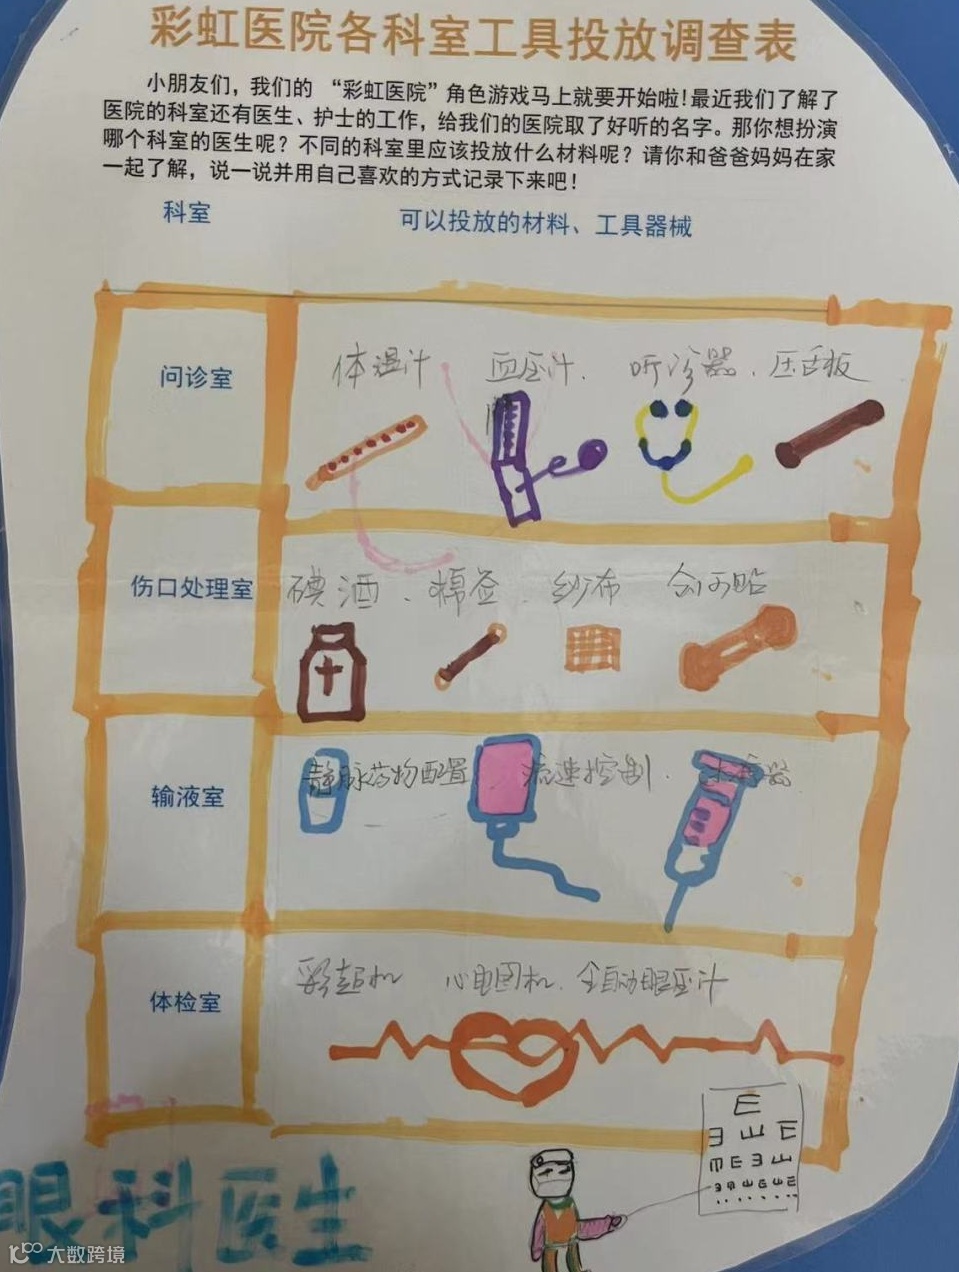 彩虹医院各科室工具投放调查表
小朋友们，我们的“彩虹医院”角色游戏马上就要开始啦！最近我们了解了
医院的科室还有医生、护士的工作，给我们的医院取了好听的名字。那你想扮演
哪个科室的医生呢？不同的科室里应该投放什么材料呢？请你和爸爸妈妈在家
一起了解，说一说并用自己喜欢的方式记录下来吧！
科室 可以投放的材料、工具器械
问诊室 体温计 血压计. 听诊器. 压舌板
伤口处理室 碘酒. 棉签. 纱布 创可贴
输液室 静脉药物配置 流速控制.
体检室 彩超机 心电图机. 全自动眼压计
E
ヨ 山 E
m E ヨ 山
眼科医生
大数跨境